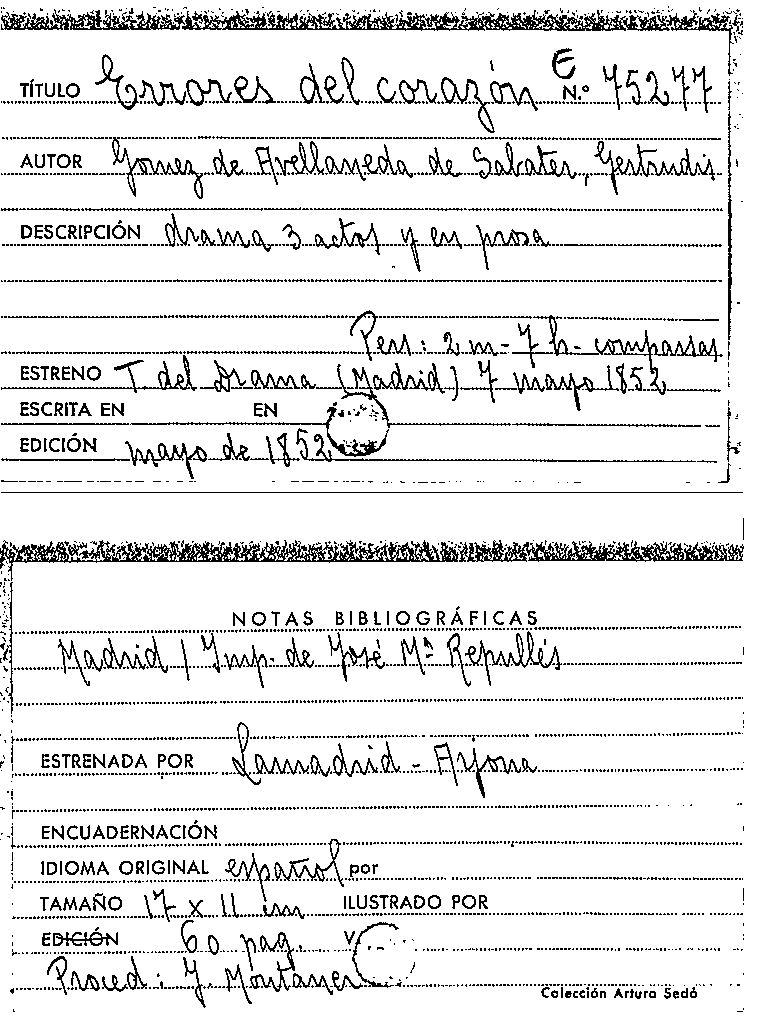 E
TÍTULO Errores del corazón N.º 75277
AUTOR Gomez de Avellaneda de Sabater, Gertrudis
DESCRIPCIÓN drama 3 actos y en prosa
Pers: 2 m - 7 h - comparsas
ESTRENO T. del Drama (Madrid) 7 mayo 1852
ESCRITA EN EN
EDICIÓN mayo de 1852
NOTAS BIBLIOGRÁFICAS
Madrid / Imp. de José Mª Repullés
ESTRENADA POR Lamadrid - Arjona
ENCUADERNACIÓN
IDIOMA ORIGINAL español por
TAMAÑO 17 x 11 cm ILUSTRADO POR
EDICIÓN 60 pag. V
Proced: J. Montaner
Colección Arturo Sedó